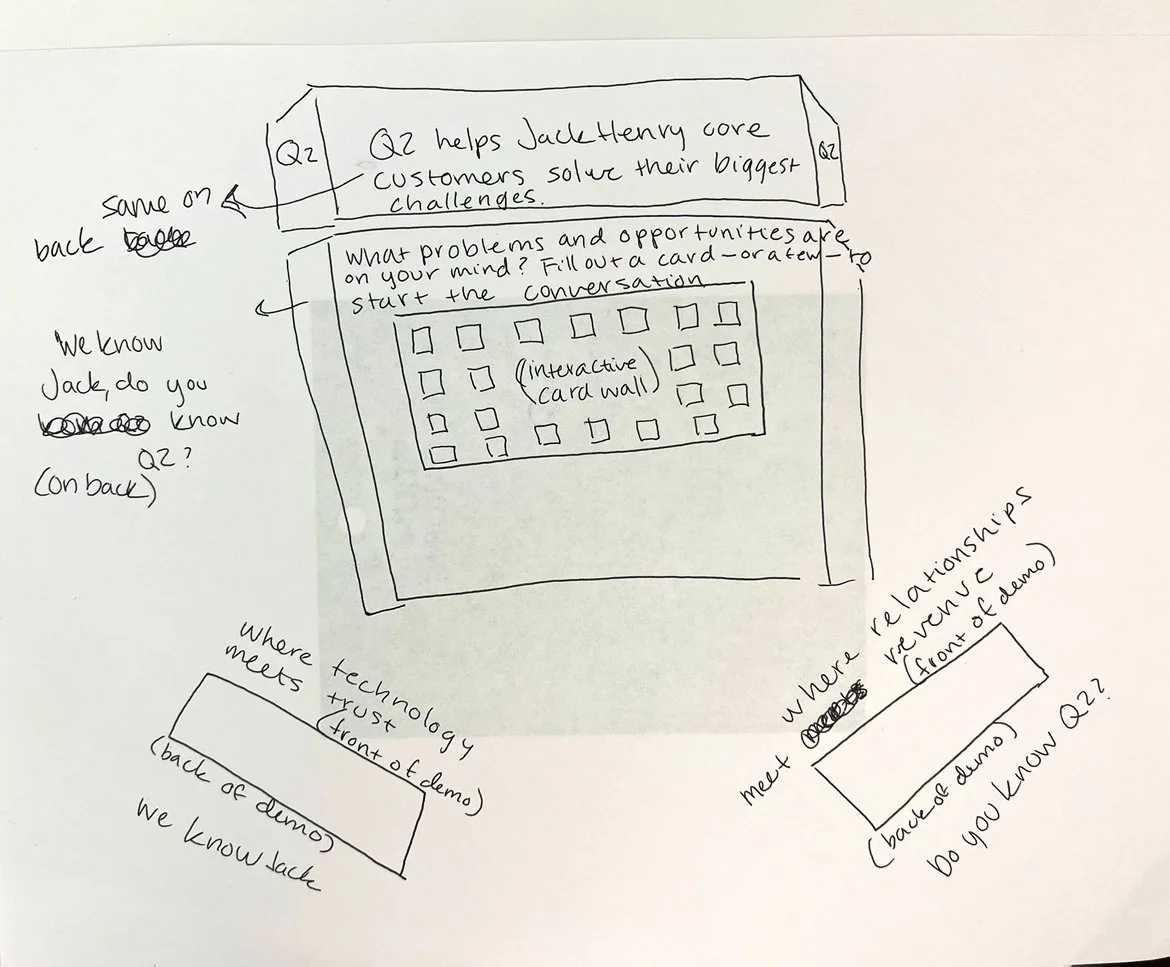 Q2
Q2 helps Jack Henry core
customers solve their biggest
challenges.
Q2
same on
back
What problems and opportunities are
on your mind? Fill out a card - or a few - to
start the conversation
(interactive
card wall)
We know
Jack, do you
know
Q2?
(on back)
where technology
meets trust
(front of demo)
(back of demo)
We know Jack
where relationships
meet revenue
(front of demo)
(back of demo)
Do you know Q2?